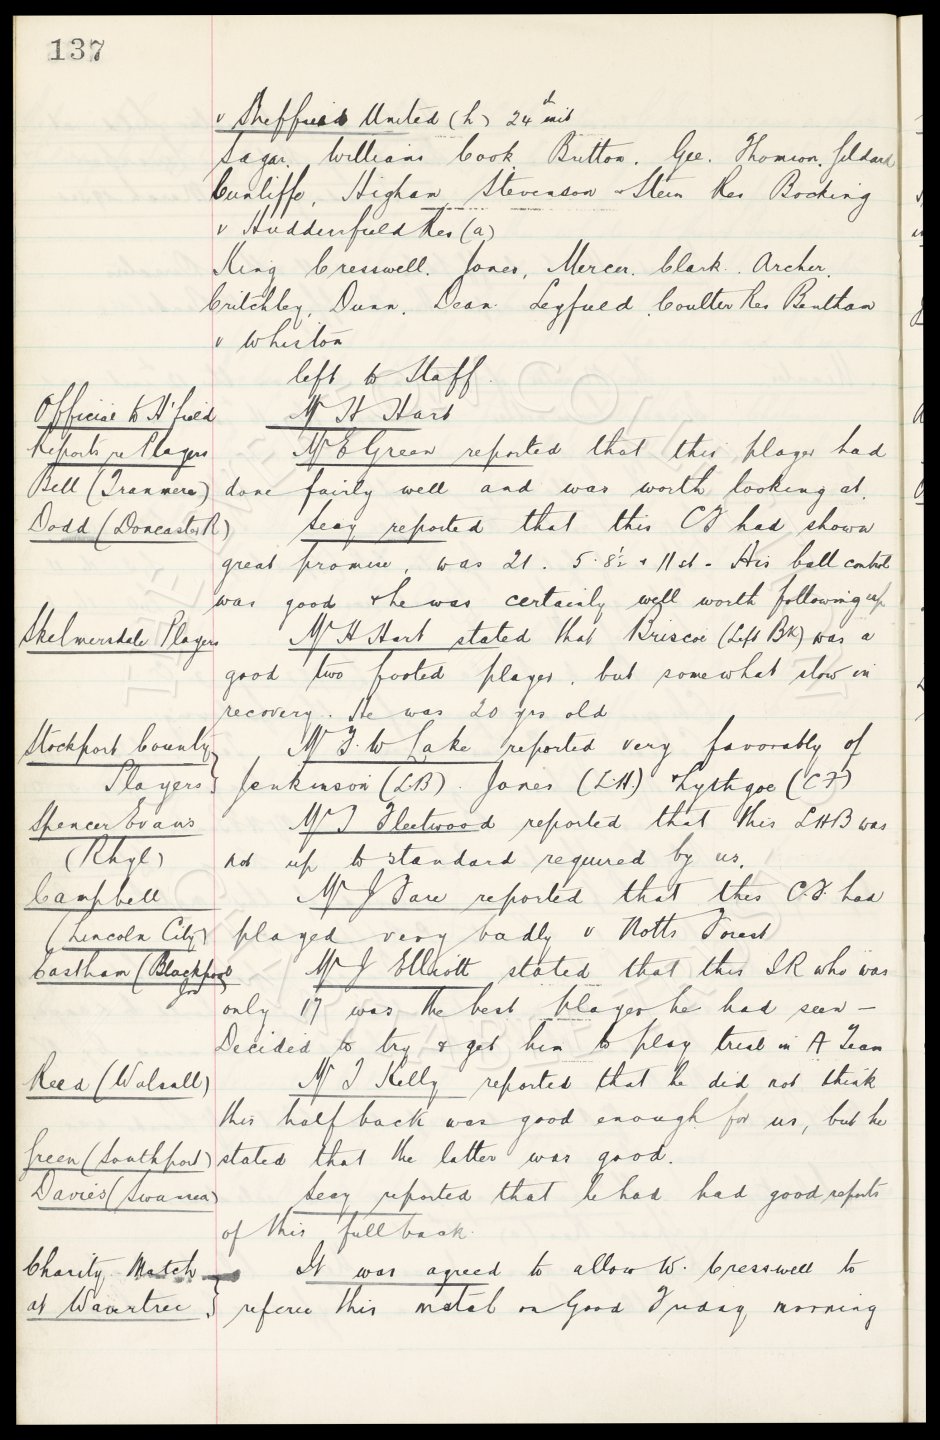 137
v Sheffield United (h) 24th inst
Sagar. Williams Cook Britton. Gee. Thomson. Geldard
Cunliffe, Higham Stevenson & Stein Res Bocking
v Huddersfield Res (a)
King Cresswell. Jones, Mercer. Clark. Archer.
Critchley, Dunn. Dean. Leyfield. Coulter Res Bentham
v Whiston
left to Staff.
Official to H'field Mr H Hart
Reports re Players Mr E Green reported that this player had
Bell (Tranmere) done fairly well and was worth looking at.
Dodd (Doncaster R) Secy reported that this CF had shown
great promise, was 21. 5.8½ & 11 st. His ball control
was good & he was certainly well worth following up
Skelmersdale Players Mr H Hart stated that Briscoe (Left Bk) was a
good two footed player, but somewhat slow in
recovery. He was 20 yrs old
Stockport County Mr T. W Lake reported very favorably of
Players } Jenkinson (LB). Jones (L.H.) & Lythgoe (CF)
Spencer Evans Mr T Fleetwood reported that this LHB was
(Rhyl) not up to standard required by us.
Campbell Mr J Fare reported that this C.F. had
(Lincoln City) played very badly v Notts Forest
Eastham (Blackpool Mr J Elliott stated that this IR who was
only 17 was the best player he had seen –
Decided to try & get him to play trial in A Team
Reed (Walsall) Mr T Kelly reported that he did not think
this half back was good enough for us, but he
Green (Southport) stated that the latter was good.
Davies (Swansea) Secy reported that he had had good reports
of this full back.
Charity Match It was agreed to allow W. Cresswell to
at Wavertree } referee this match on Good Friday morning